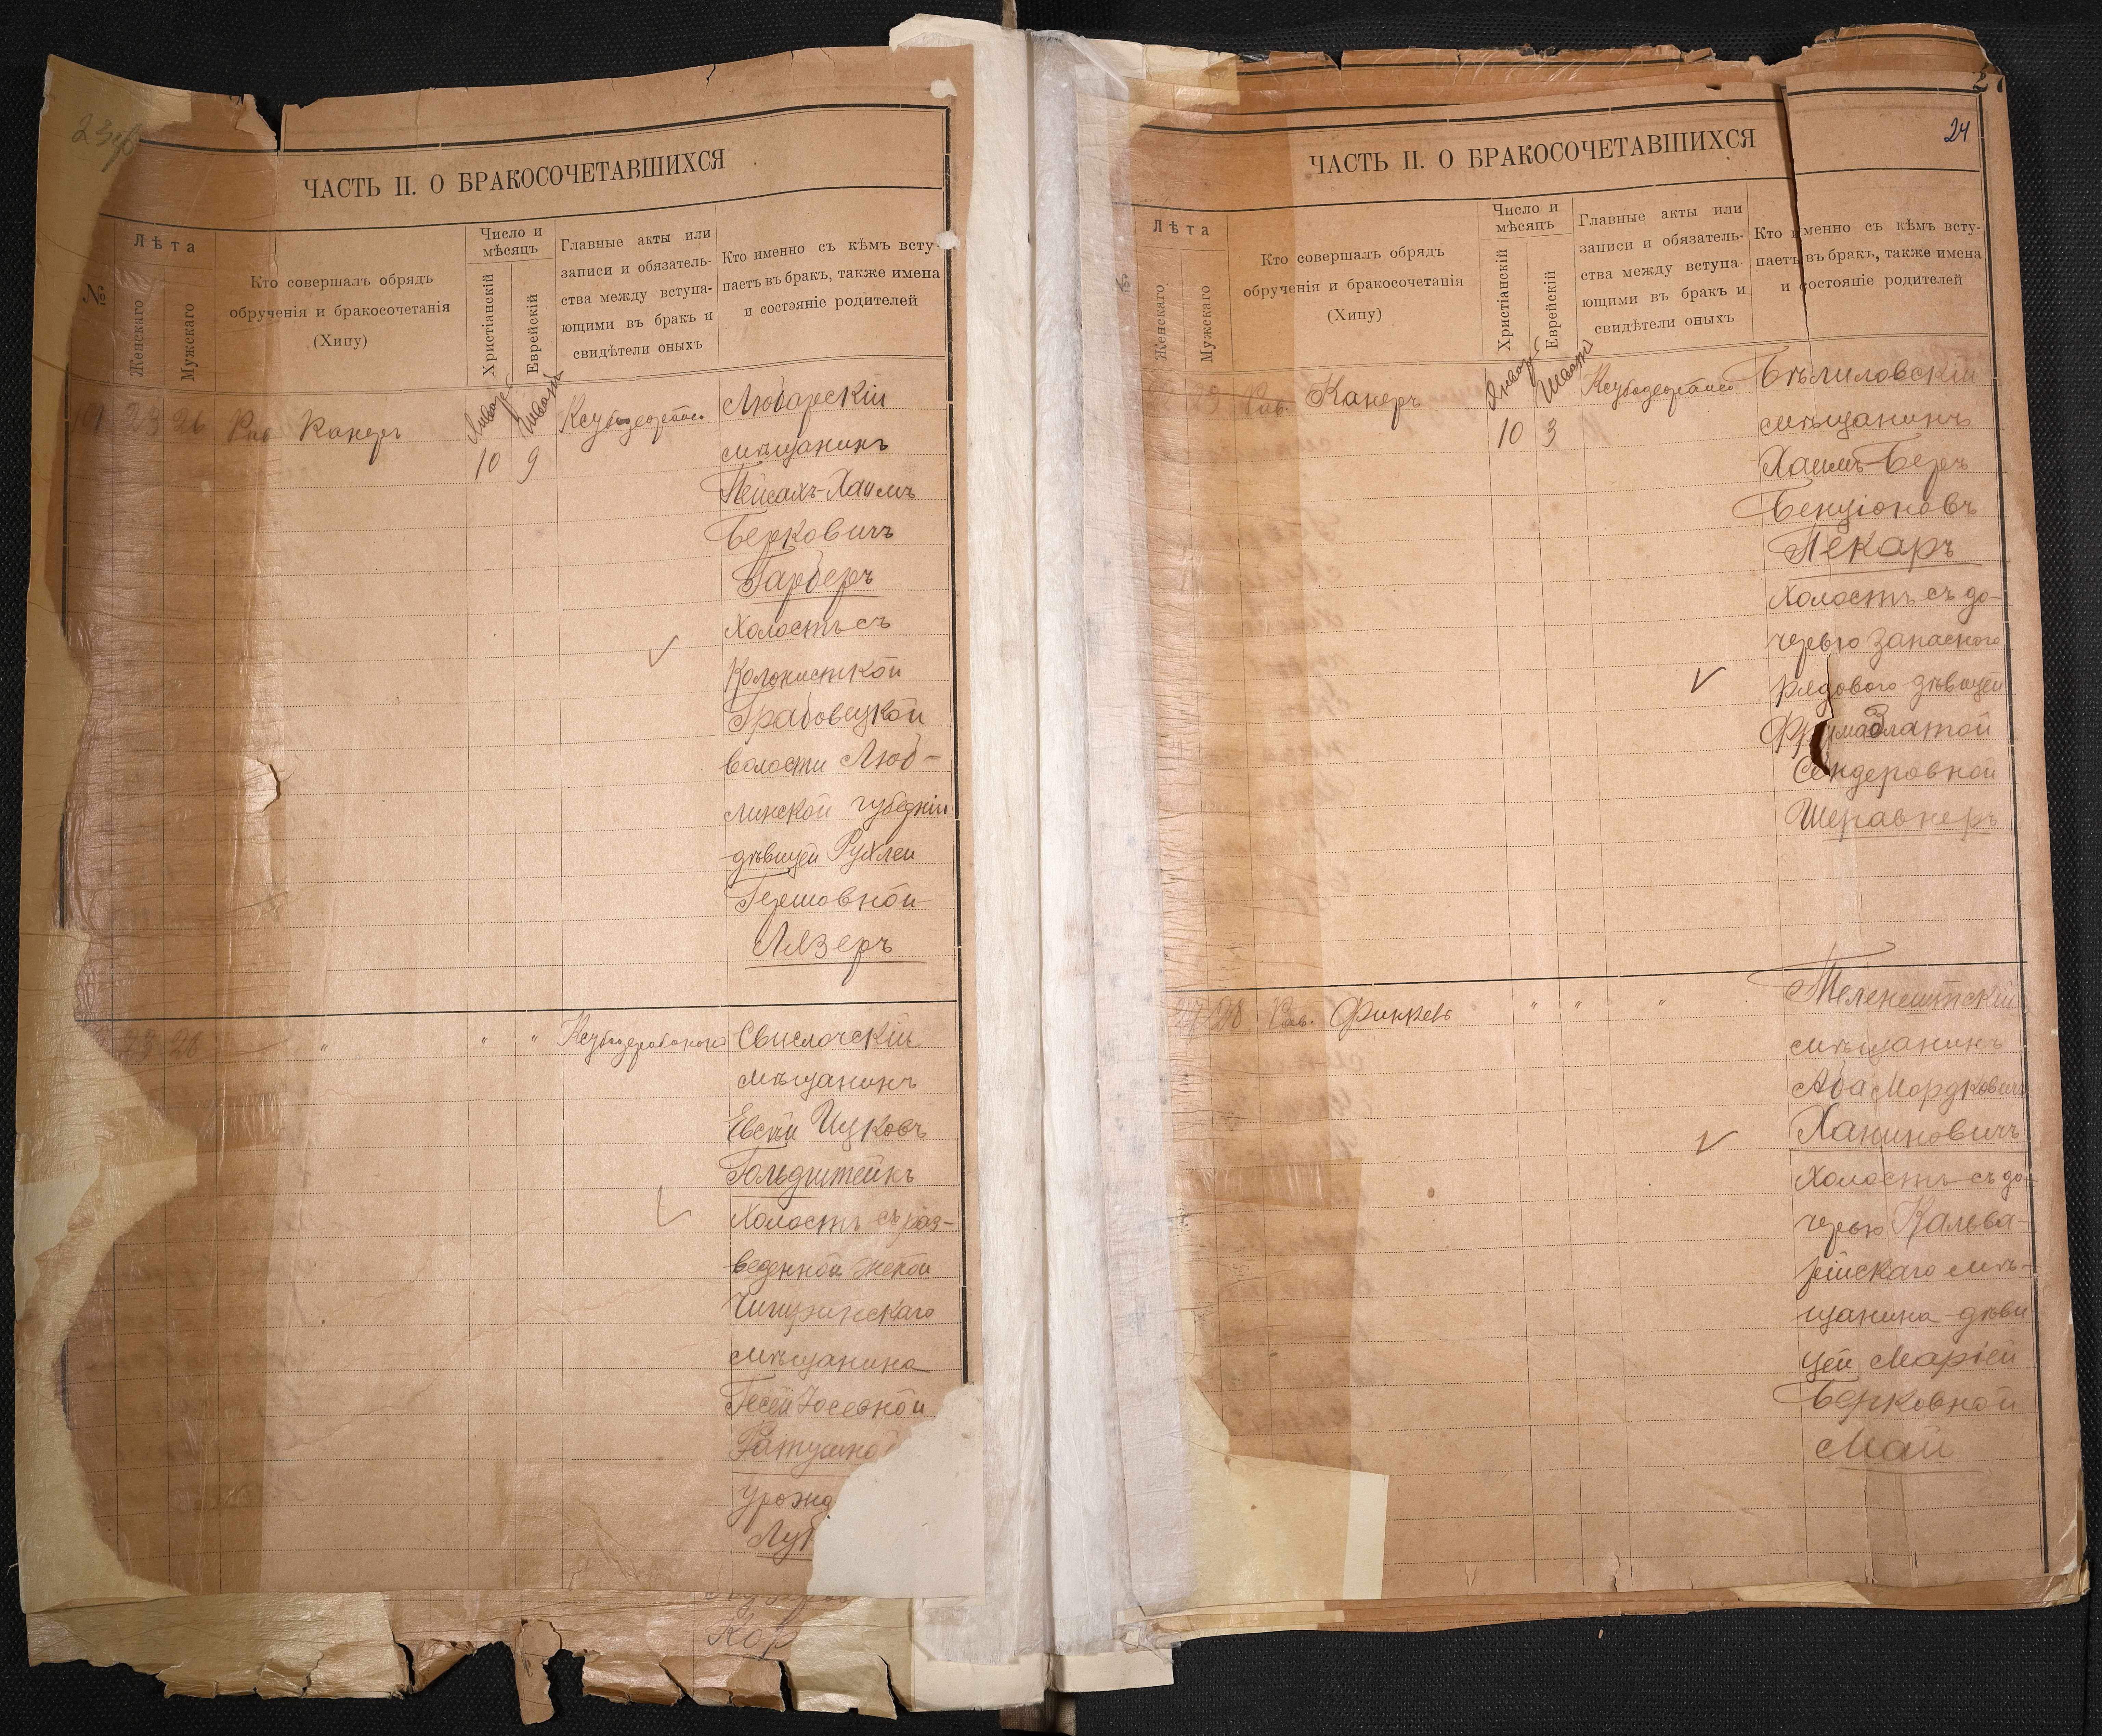 ЧАСТЬ II. О БРАКОСОЧЕТАВШИХСЯ
№
Лѣта
Женскаго
Мужскаго
Кто совершалъ обрядъ
обрученія и бракосочетанія
(Хипу)
Число и
мѣсяцъ
Христіанскій
Еврейскій
Главные акты или
записи и обязатель-
ства между вступа-
ющими въ бракъ и
свидѣтели оныхъ
Кто именно съ кѣмъ всту-
паетъ въ бракъ, также имена
и состояніе родителей
23 26 Рав. Канеръ
10 9
Любарскій
мѣщанинъ
Пейсахъ-Хаимъ
Берковичъ
Гарберъ
Холостъ съ
Колонисткой
Грабовецкой
волости Люб-
линской губерніи
дѣвицей Рухлей
Гершовной
Лязеръ
" " "
Свислочскій
мѣщанинъ
Евсѣй Ицковъ
Гольдштейнъ
Холостъ съ раз-
веденной женой
Чигиринскаго
мѣщанина
Песей Іосевной
Ратушной
урожд
Лу
Кор
24
ЧАСТЬ II. О БРАКОСОЧЕТАВШИХСЯ
№
Лѣта
Женскаго
Мужскаго
Кто совершалъ обрядъ
обрученія и бракосочетанія
(Хипу)
Число и
мѣсяцъ
Христіанскій
Еврейскій
Главные акты или
записи и обязатель-
ства между вступа-
ющими въ бракъ и
свидѣтели оныхъ
Кто именно съ кѣмъ всту-
паетъ въ бракъ, также имена
и состояніе родителей
Рав. Канеръ
Январь Шватъ
10 3
Бѣлиловскій
мѣщанинъ
Хаимъ-Беръ
Бенціоновъ
Пекаръ
Холостъ съ до-
черью запасного
рядового дѣвицей
Фрумазлатой
Сендеровной
Шеравнеръ
28 Рав. Финкель " " "
Теленештскій
мѣщанинъ
Аба Мордковичъ
Ханиновичъ
Холостъ съ до-
черью Кальва-
рійскаго мѣ-
щанина дѣви
цей Маріей
Берковной
Май